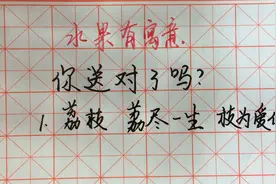 水果有寓意
你送对了吗?
1. 荔枝 荔尽一生 枝为爱